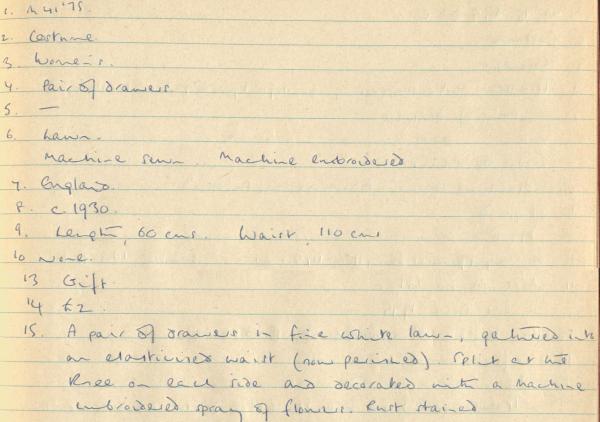 1. M41'75.
2. Costume.
3. Women's.
4. Pair of drawers
5. —
6. Lawn.
Machine sewn. Machine embroidered
7. England.
8. c.1930.
9. Length, 60 cms. Waist, 110 cms
10 None.
13 Gift.
14 £2.
15. A pair of drawers in fine white lawn, gathered into
an elasticised waist (now perished). Split at the
knee on each side and decorated with a machine
embroidered spray of flowers. Rust stained